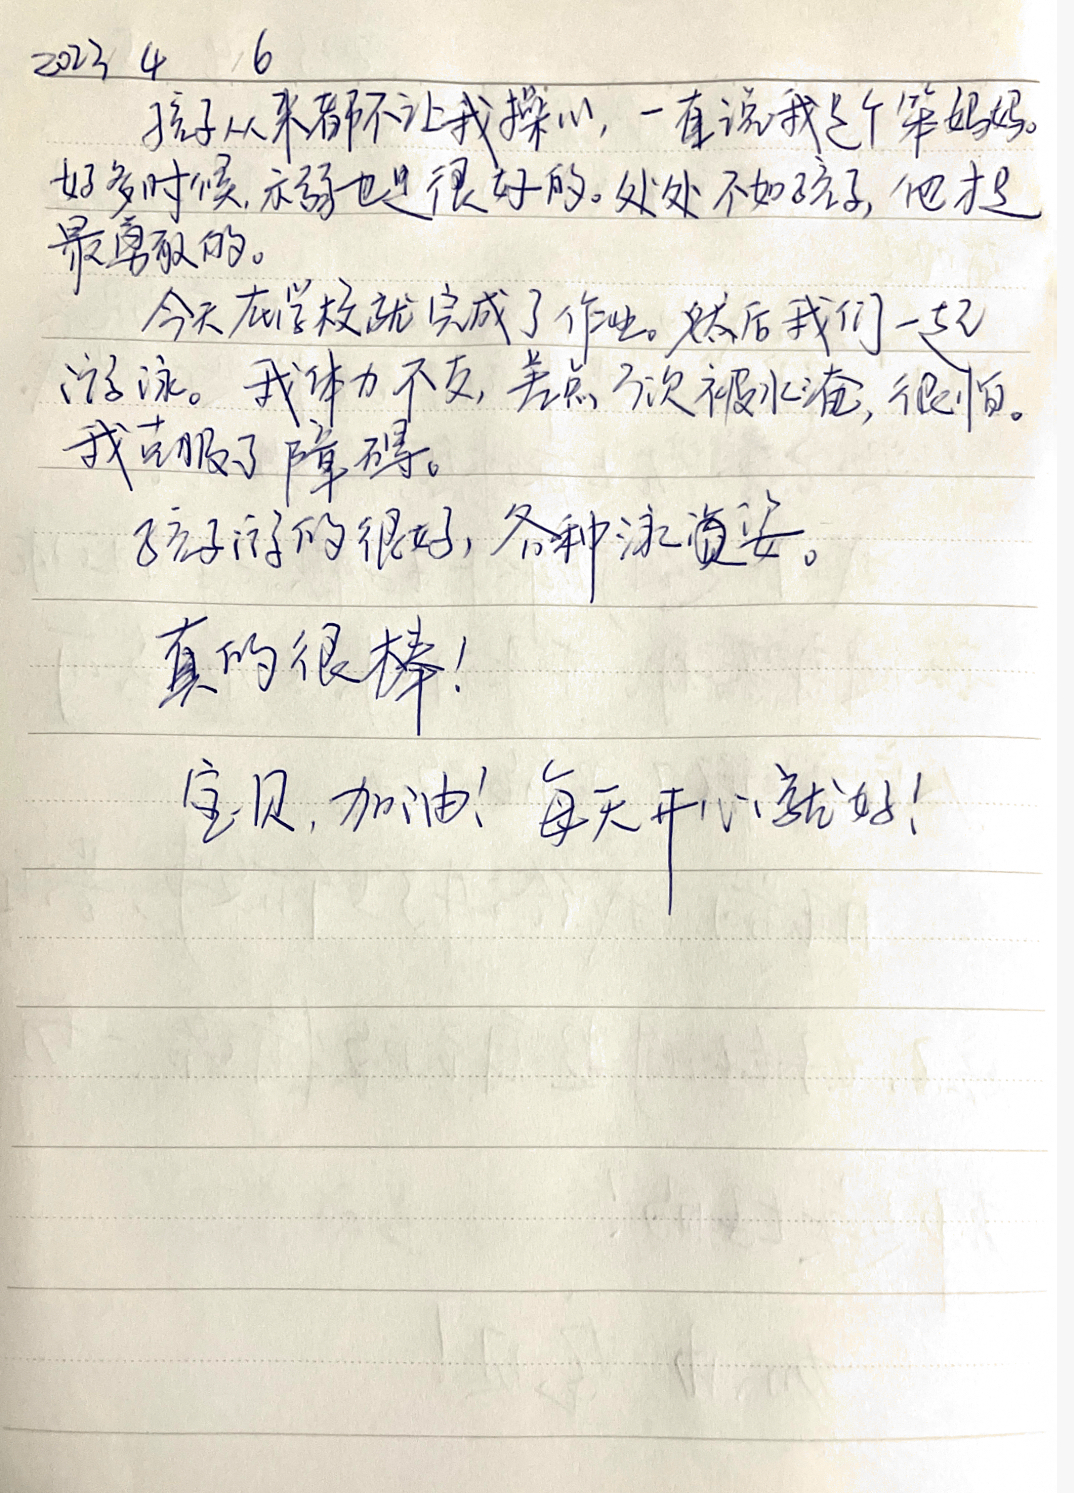 2023 4 6
孩子从来都不让我操心，一直说我是个笨妈妈。
好多时候，示弱也是很好的。处处不如孩子，他才是
最勇敢的。
今天在学校就完成了作业。然后我们一起
游泳。我体力不支，差点 次被水淹，很怕。
我克服了障碍。
孩子游的很好，各种泳姿。
真的很棒！
宝贝，加油！每天开心就好！